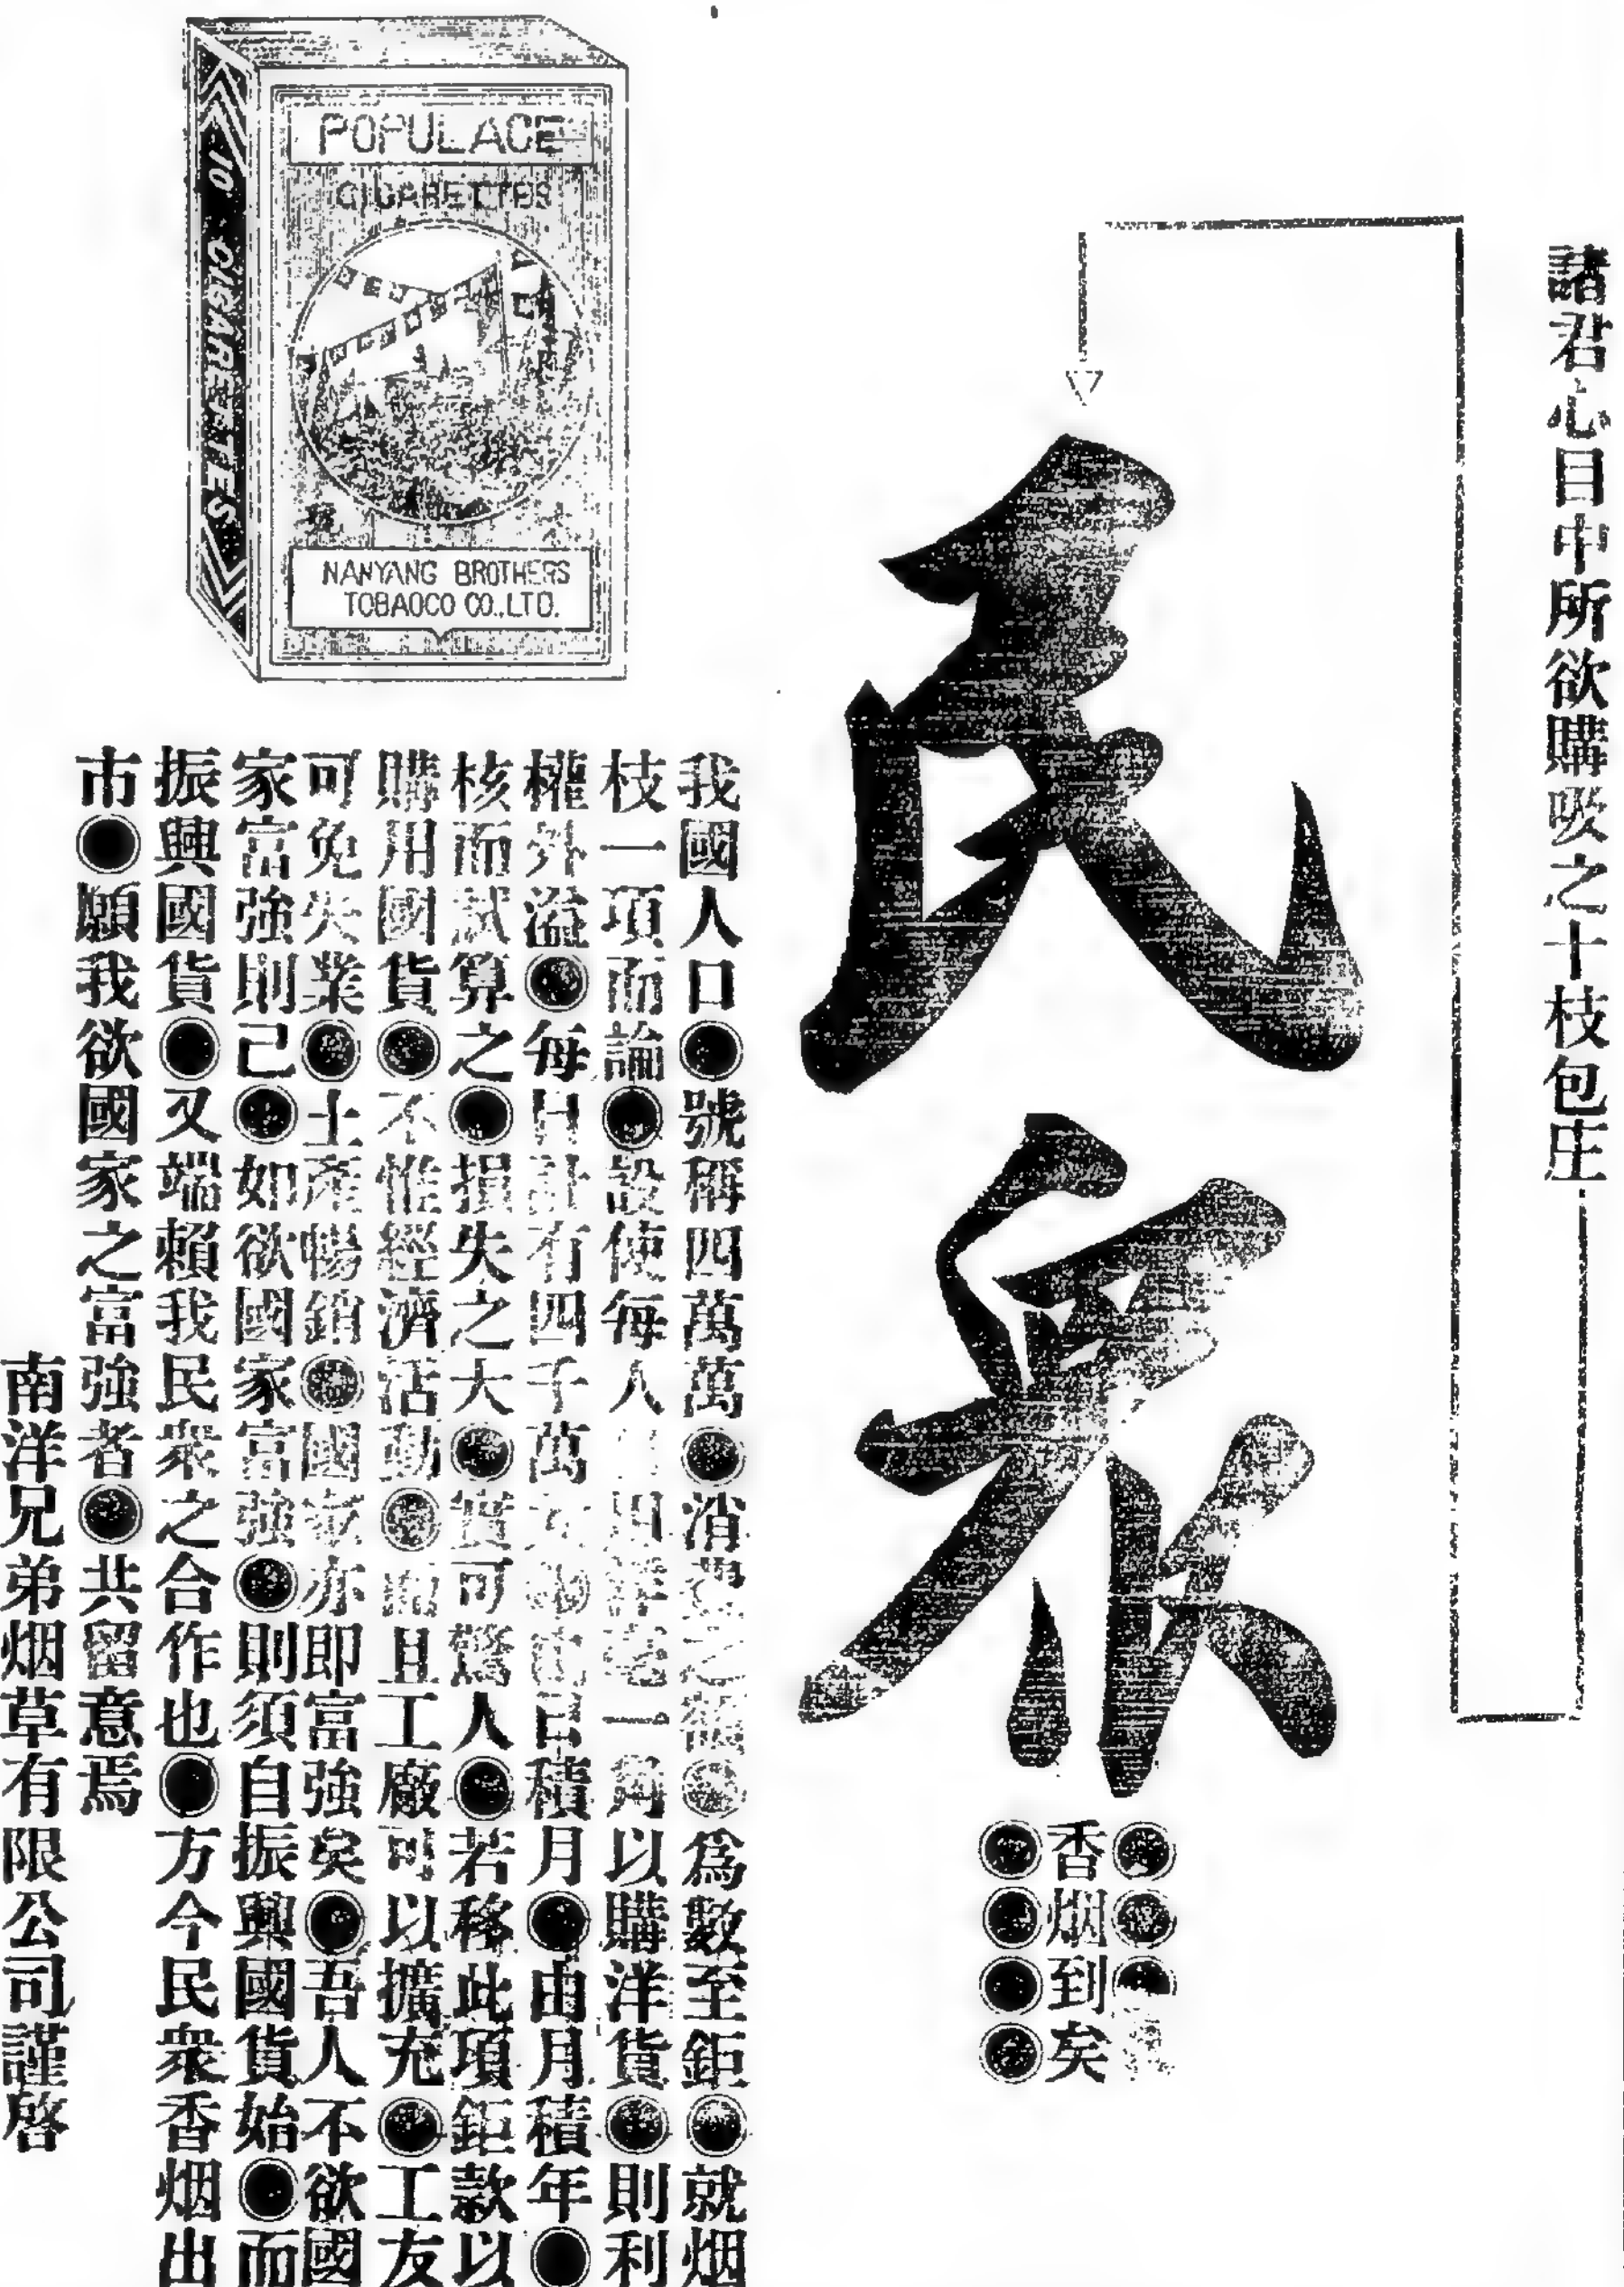 諸君心目中所欲購吸之十枝包庄
民衆
香烟到矣
POPULACE
CIGARETTES
10 CIGARETTES
NANYANG BROTHERS
TOBACCO CO.,LTD.
我國人口●號稱四萬萬●消費之額●爲數至鉅●就烟
枝一項而論●設使每人一角以購洋貨●則利
權外溢●每日計有四千萬 積月●由月積年●
核而試算之●損失之大●實可驚人●若移此項鉅款以
購用國貨●不惟經濟活動●而且工廠可以擴充●工友
可免失業●土產暢銷●國家亦即富強矣●吾人不欲國
家富強則己●如欲國家富強●則須自振興國貨始●而
振興國貨●又端賴我民衆之合作也●方今民衆香烟出
市●願我欲國家之富強者●共留意焉
南洋兄弟烟草有限公司謹啓